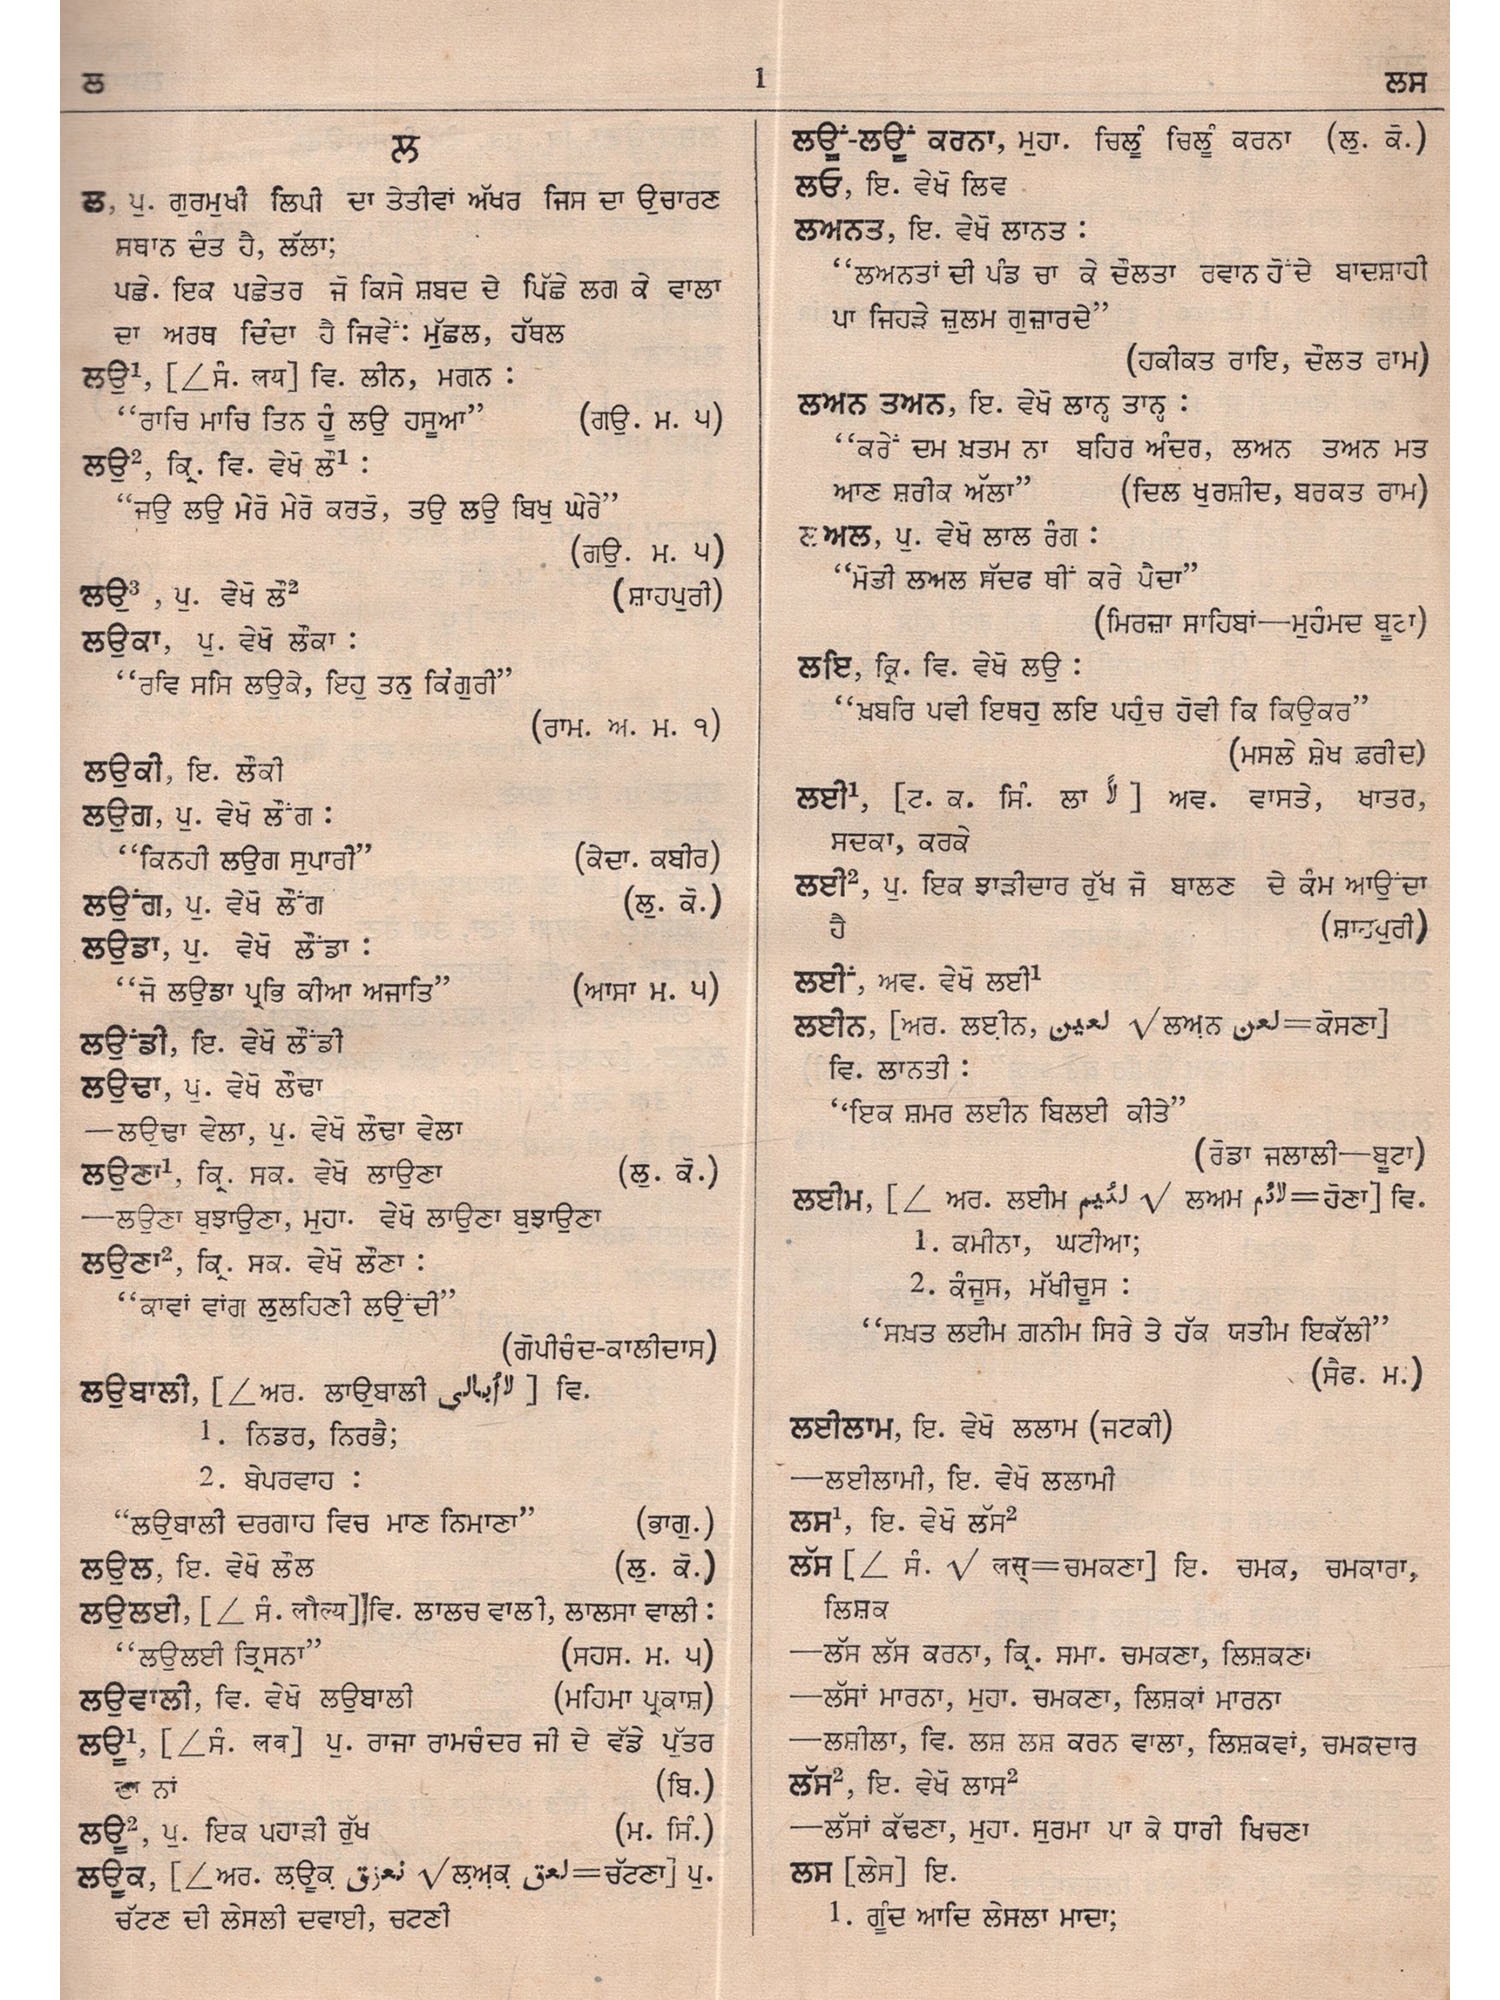 ਲ
1
ਲਸ
ਲ
ਲ, ਪੁ. ਗੁਰਮੁਖੀ ਲਿਪੀ ਦਾ ਤੇਤੀਵਾਂ ਅੱਖਰ ਜਿਸ ਦਾ ਉਚਾਰਣ
ਸਥਾਨ ਦੰਤ ਹੈ, ਲੱਲਾ;
ਪਛੇ. ਇਕ ਪਛੇਤਰ ਜੋ ਕਿਸੇ ਸ਼ਬਦ ਦੇ ਪਿੱਛੇ ਲਗ ਕੇ ਵਾਲਾ
ਦਾ ਅਰਥ ਦਿੰਦਾ ਹੈ ਜਿਵੇਂ: ਮੁੱਛਲ, ਹੱਥਲ
ਲਉ¹, [∠ਸੰ. लध] ਵਿ. ਲੀਨ, ਮਗਨ :
“ਰਾਚਿ ਮਾਚਿ ਤਿਨ ਹੂੰ ਲਉ ਹਸੂਆ” (ਗਉ. ਮ. ੫)
ਲਉ², ਕ੍ਰਿ. ਵਿ. ਵੇਖੋ ਲੌ¹ :
“ਜਉ ਲਉ ਮੇਰੋ ਮੇਰੋ ਕਰਤੋ, ਤਉ ਲਉ ਬਿਖੁ ਘੇਰੇ”
(ਗਉ. ਮ. ੫)
ਲਉ³ , ਪੁ. ਵੇਖੋ ਲੌ² (ਸ਼ਾਹਪੁਰੀ)
ਲਉਕਾ, ਪੁ. ਵੇਖੋ ਲੌਕਾ :
“ਰਵਿ ਸਸਿ ਲਉਕੇ, ਇਹੁ ਤਨੁ ਕਿੰਗੁਰੀ”
(ਰਾਮ. ਅ. ਮ. ੧)
ਲਉਕੀ, ਇ. ਲੌਕੀ
ਲਉਗ, ਪੁ. ਵੇਖੋ ਲੌਂਗ :
“ਕਿਨਹੀ ਲਉਗ ਸੁਪਾਰੀ” (ਕੇਦਾ. ਕਬੀਰ)
ਲਉਂਗ, ਪੁ. ਵੇਖੋ ਲੌਂਗ (ਲੁ. ਕੋ.)
ਲਉਡਾ, ਪੁ. ਵੇਖੋ ਲੌਂਡਾ :
“ਜੋ ਲਉਡਾ ਪ੍ਰਭਿ ਕੀਆ ਅਜਾਤਿ” (ਆਸਾ ਮ. ੫)
ਲਉਂਡੀ, ਇ. ਵੇਖੋ ਲੌਂਡੀ
ਲਉਢਾ, ਪੁ. ਵੇਖੋ ਲੌਢਾ
—ਲਉਢਾ ਵੇਲਾ, ਪੁ. ਵੇਖੋ ਲੌਢਾ ਵੇਲਾ
ਲਉਣਾ¹, ਕ੍ਰਿ. ਸਕ. ਵੇਖੋ ਲਾਉਣਾ (ਲੁ. ਕੋ.)
—ਲਉਣਾ ਬੁਝਾਉਣਾ, ਮੁਹਾ. ਵੇਖੋ ਲਾਉਣਾ ਬੁਝਾਉਣਾ
ਲਉਣਾ², ਕ੍ਰਿ. ਸਕ. ਵੇਖੋ ਲੌਣਾ :
“ਕਾਵਾਂ ਵਾਂਗ ਲੁਲਹਿਣੀ ਲਉਂਦੀ”
(ਗੋਪੀਚੰਦ-ਕਾਲੀਦਾਸ)
ਲਉਬਾਲੀ, [∠ਅਰ. ਲਾਉਬਾਲੀ لاأبالی ] ਵਿ.
1. ਨਿਡਰ, ਨਿਰਭੈ;
2. ਬੇਪਰਵਾਹ :
“ਲਉਬਾਲੀ ਦਰਗਾਹ ਵਿਚ ਮਾਣ ਨਿਮਾਣਾ” (ਭਾਗੁ.)
ਲਉਲ, ਇ. ਵੇਖੋ ਲੌਲ (ਲੁ. ਕੋ.)
ਲਉਲਈ, [∠ ਸੰ. लौल्य] ਵਿ. ਲਾਲਚ ਵਾਲੀ, ਲਾਲਸਾ ਵਾਲੀ :
“ਲਉਲਈ ਤ੍ਰਿਸਨਾ” (ਸਹਸ. ਮ. ੫)
ਲਉਵਾਲੀ, ਵਿ. ਵੇਖੋ ਲਉਬਾਲੀ (ਮਹਿਮਾ ਪ੍ਰਕਾਸ਼)
ਲਊ¹, [∠ਸੰ. लव] ਪੁ. ਰਾਜਾ ਰਾਮਚੰਦਰ ਜੀ ਦੇ ਵੱਡੇ ਪੁੱਤਰ
ਦਾ ਨਾਂ (ਬਿ.)
ਲਊ², ਪੁ. ਇਕ ਪਹਾੜੀ ਰੁੱਖ (ਮ. ਸਿੰ.)
ਲਊਕ, [∠ਅਰ. ਲਊਕ਼ لعوق √ਲਅ਼ਕ਼ لعق=ਚੱਟਣਾ] ਪੁ.
ਚੱਟਣ ਦੀ ਲੇਸਲੀ ਦਵਾਈ, ਚਟਣੀ
ਲਊਂ-ਲਊਂ ਕਰਨਾ, ਮੁਹਾ. ਚਿਲੂੰ ਚਿਲੂੰ ਕਰਨਾ (ਲੁ. ਕੋ.)
ਲਓ, ਇ. ਵੇਖੋ ਲਿਵ
ਲਅਨਤ, ਇ. ਵੇਖੋ ਲਾਨਤ :
“ਲਅਨਤਾਂ ਦੀ ਪੰਡ ਚਾ ਕੇ ਦੌਲਤਾ ਰਵਾਨ ਹੋਂਦੇ ਬਾਦਸ਼ਾਹੀ
ਪਾ ਜਿਹੜੇ ਜ਼ੁਲਮ ਗੁਜ਼ਾਰਦੇ”
(ਹਕੀਕਤ ਰਾਇ, ਦੌਲਤ ਰਾਮ)
ਲਅਨ ਤਅਨ, ਇ. ਵੇਖੋ ਲਾਨ੍ਹ ਤਾਨ੍ਹ :
“ਕਰੇਂ ਦਮ ਖ਼ਤਮ ਨਾ ਬਹਿਰ ਅੰਦਰ, ਲਅਨ ਤਅਨ ਮਤ
ਆਣ ਸ਼ਰੀਕ ਅੱਲਾ” (ਦਿਲ ਖੁਰਸ਼ੀਦ, ਬਰਕਤ ਰਾਮ)
ਲਅਲ, ਪੁ. ਵੇਖੋ ਲਾਲ ਰੰਗ :
“ਮੋਤੀ ਲਅਲ ਸੱਦਫ ਥੀਂ ਕਰੇ ਪੈਦਾ”
(ਮਿਰਜ਼ਾ ਸਾਹਿਬਾਂ—ਮੁਹੰਮਦ ਬੂਟਾ)
ਲਇ, ਕ੍ਰਿ. ਵਿ. ਵੇਖੋ ਲਉ :
“ਖ਼ਬਰਿ ਪਵੀ ਇਥਹੁ ਲਇ ਪਹੁੰਚ ਹੋਵੀ ਕਿ ਕਿਉਕਰ”
(ਮਸਲੇ ਸ਼ੇਖ ਫ਼ਰੀਦ)
ਲਈ¹, [ਟ. ਕ. ਸਿੰ. ਲਾ لاۡ ] ਅਵ. ਵਾਸਤੇ, ਖਾਤਰ,
ਸਦਕਾ, ਕਰਕੇ
ਲਈ², ਪੁ. ਇਕ ਝਾੜੀਦਾਰ ਰੁੱਖ ਜੋ ਬਾਲਣ ਦੇ ਕੰਮ ਆਉਂਦਾ
ਹੈ (ਸ਼ਾਹਪੁਰੀ)
ਲਈਂ, ਅਵ. ਵੇਖੋ ਲਈ¹
ਲਈਨ, [ਅਰ. ਲਈ਼ਨ, لعین √ਲਅ਼ਨ لعن=ਕੋਸਣਾ]
ਵਿ. ਲਾਨਤੀ :
“ਇਕ ਸ਼ਮਰ ਲਈਨ ਬਿਲਈ ਕੀਤੇ”
(ਰੋਡਾ ਜਲਾਲੀ—ਬੂਟਾ)
ਲਈਮ, [∠ ਅਰ. ਲਈਮ لئیم √ ਲਅਮ لاؤم=ਹੋਣਾ] ਵਿ.
1. ਕਮੀਨਾ, ਘਟੀਆ;
2. ਕੰਜੂਸ, ਮੱਖੀਚੂਸ :
“ਸਖ਼ਤ ਲਈਮ ਗ਼ਨੀਮ ਸਿਰੇ ਤੇ ਹੱਕ ਯਤੀਮ ਇਕੱਲੀ”
(ਸੈਫ. ਮ.)
ਲਈਲਾਮ, ਇ. ਵੇਖੋ ਲਲਾਮ (ਜਟਕੀ)
—ਲਈਲਾਮੀ, ਇ. ਵੇਖੋ ਲਲਾਮੀ
ਲਸ¹, ਇ. ਵੇਖੋ ਲੱਸ²
ਲੱਸ [∠ ਸੰ. √ लस्=ਚਮਕਣਾ] ਇ. ਚਮਕ, ਚਮਕਾਰਾ,
ਲਿਸ਼ਕ
—ਲੱਸ ਲੱਸ ਕਰਨਾ, ਕ੍ਰਿ. ਸਮਾ. ਚਮਕਣਾ, ਲਿਸ਼ਕਣਾ
—ਲੱਸਾਂ ਮਾਰਨਾ, ਮੁਹਾ. ਚਮਕਣਾ, ਲਿਸ਼ਕਾਂ ਮਾਰਨਾ
—ਲਸ਼ੀਲਾ, ਵਿ. ਲਸ਼ ਲਸ਼ ਕਰਨ ਵਾਲਾ, ਲਿਸ਼ਕਵਾਂ, ਚਮਕਦਾਰ
ਲੱਸ², ਇ. ਵੇਖੋ ਲਾਸ²
—ਲੱਸਾਂ ਕੱਢਣਾ, ਮੁਹਾ. ਸੁਰਮਾ ਪਾ ਕੇ ਧਾਰੀ ਖਿਚਣਾ
ਲਸ [ਲੇਸ] ਇ.
1. ਗੂੰਦ ਆਦਿ ਲੇਸਲਾ ਮਾਦਾ;